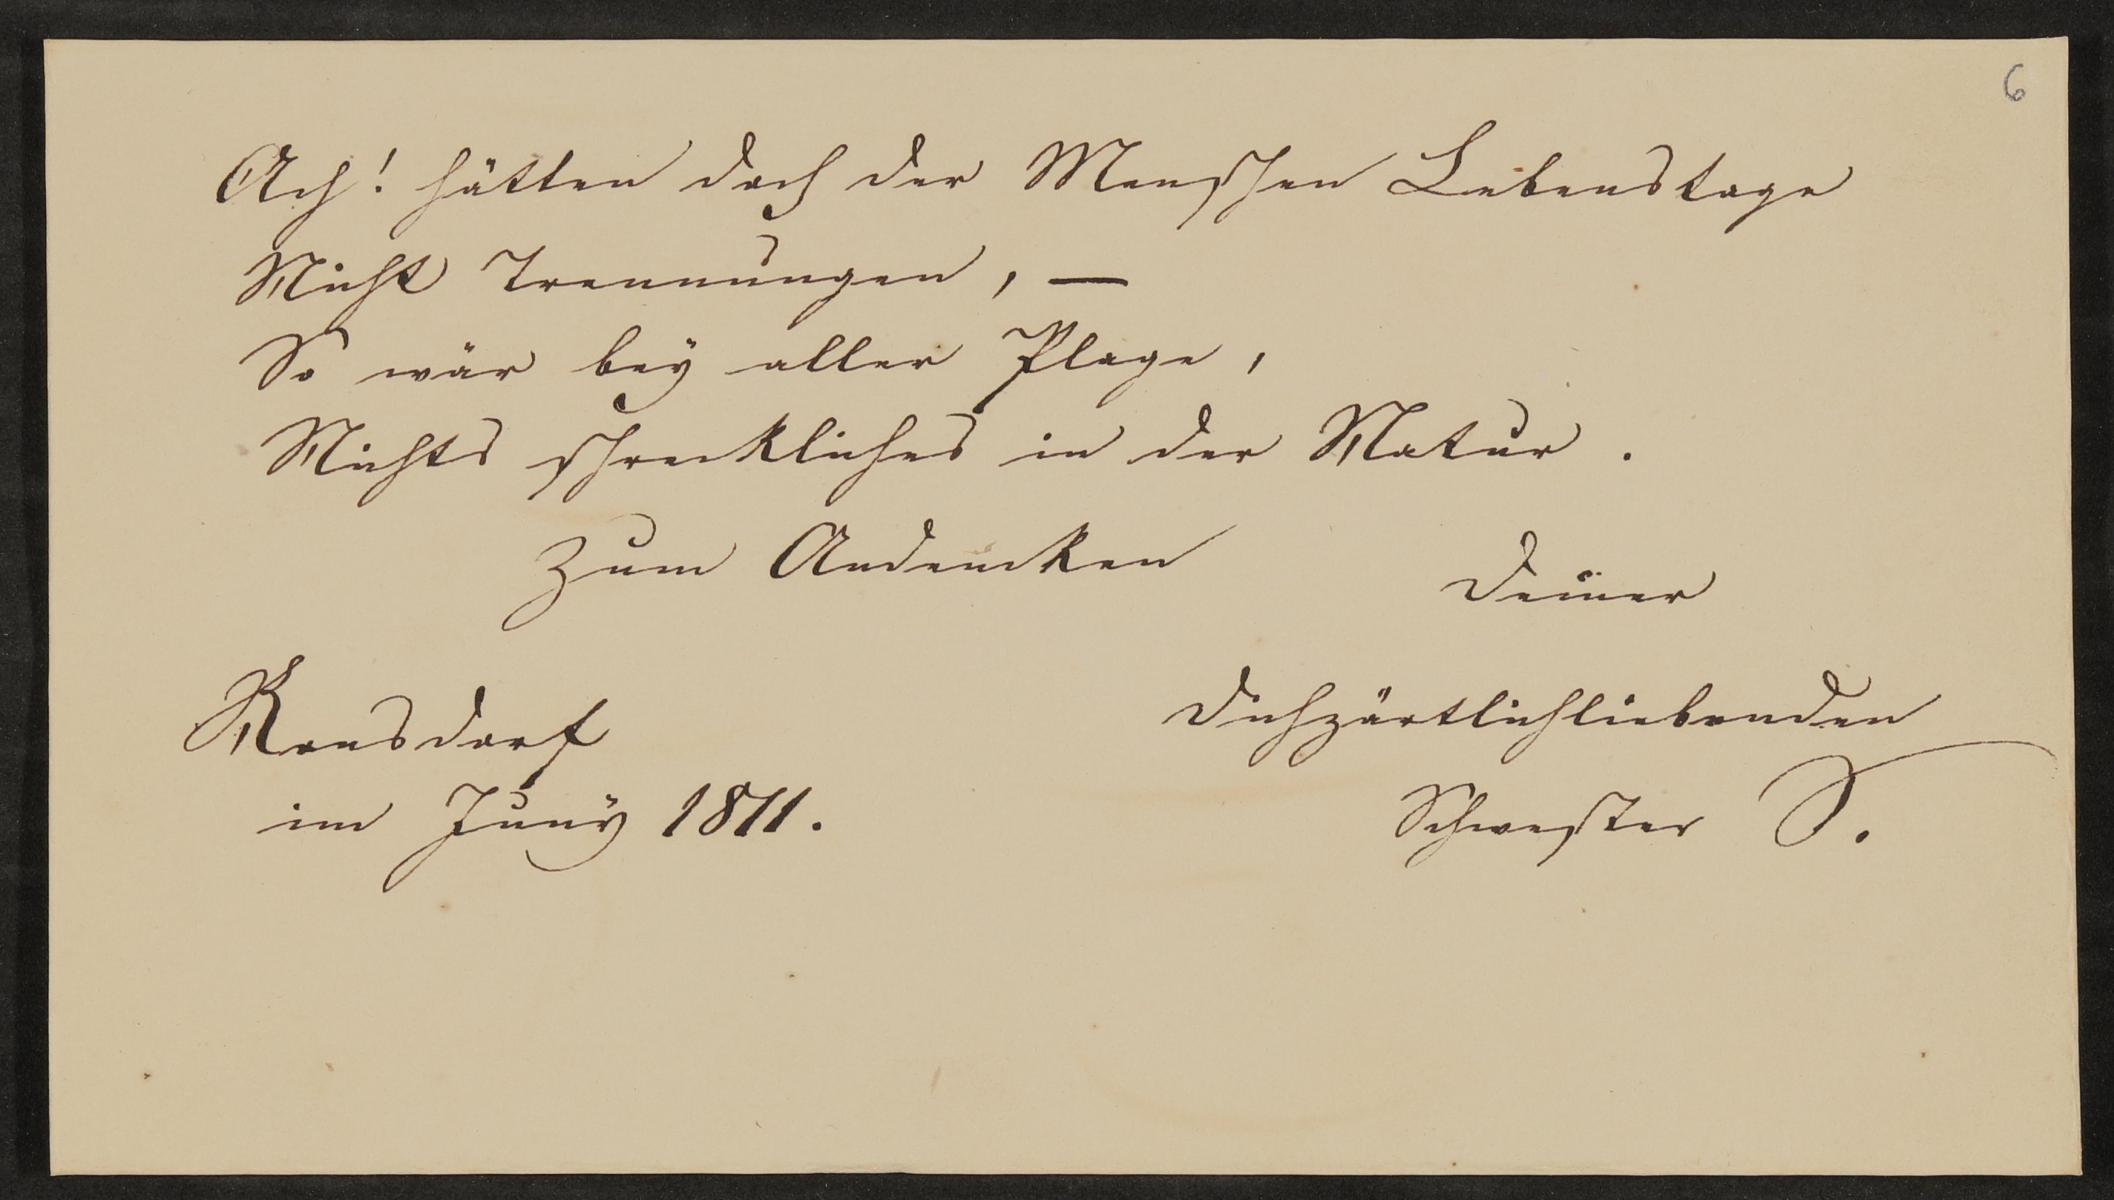 6
Ach! hätten doch der Menschen Lebenstage
Nicht Trennungen, —
So wär bey aller Plage,
Nichts schreckliches in der Natur.
Zum Andencken
Deiner
Ronsdorf
Dichzärtlichliebenden
im Juny 1811.
Schwester S.